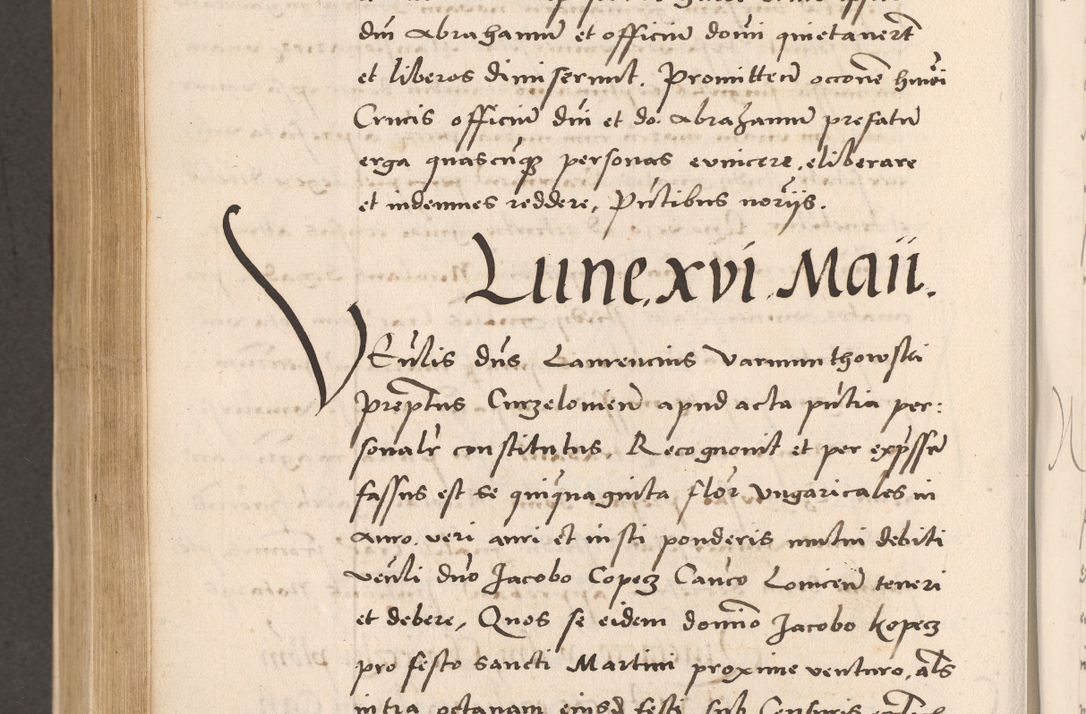 dni Abrahamu et officiu domi quietauert
et liberos dimiserunt. Promitten occone hmoi
Crucis officiu dni et do. Abrahamu prefatu
erga quascuqz personas euincere, eliberare
et indemnes reddere, Pntibus noriis.
Lune. xvi. Maii.
VEnlis dns Laurencius Varmunthowski
preptus Curzelouien apud acta pntia per:
sonalr constitutus. Recognouit et per expsse
fassus est se quiquaginta flor Vngaricales in
auro. veri auri et iusti ponderis mutui debiti
venli dno Jacobo Copecz Canco Louicen teneri
et debere, Quos se eidem domio Jacobo Kopecz
pro festo Sancti Martini proxime venturo, als
intra octauam eiusd festi sub Censuris